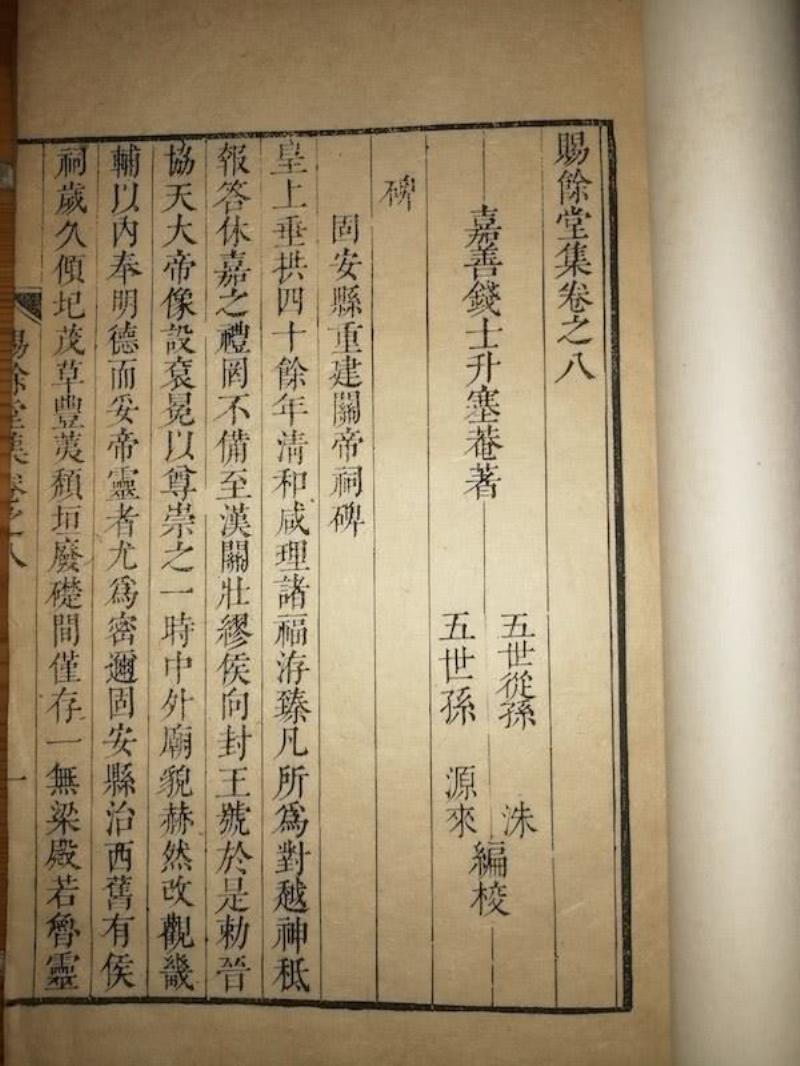 賜餘堂集卷之八
嘉善錢士升塞菴著
五世從孫 洙
五世孫 源來
編梭
碑
固安縣重建關帝祠碑
皇上垂拱四十餘年清和咸理諸福洊臻凡所爲對越神秪
報答休嘉之禮罔不備至漢關壯繆侯向封王號於是勅晉
協天大帝像設袞冕以尊崇之一時中外廟貌赫然改觀畿
輔以內奉明德而妥帝靈者尤爲密邇固安縣治西舊有侯
祠歲久傾圮茂草豐荑頹垣廢礎間僅存一無梁殿若魯靈
賜餘堂集卷之八
一